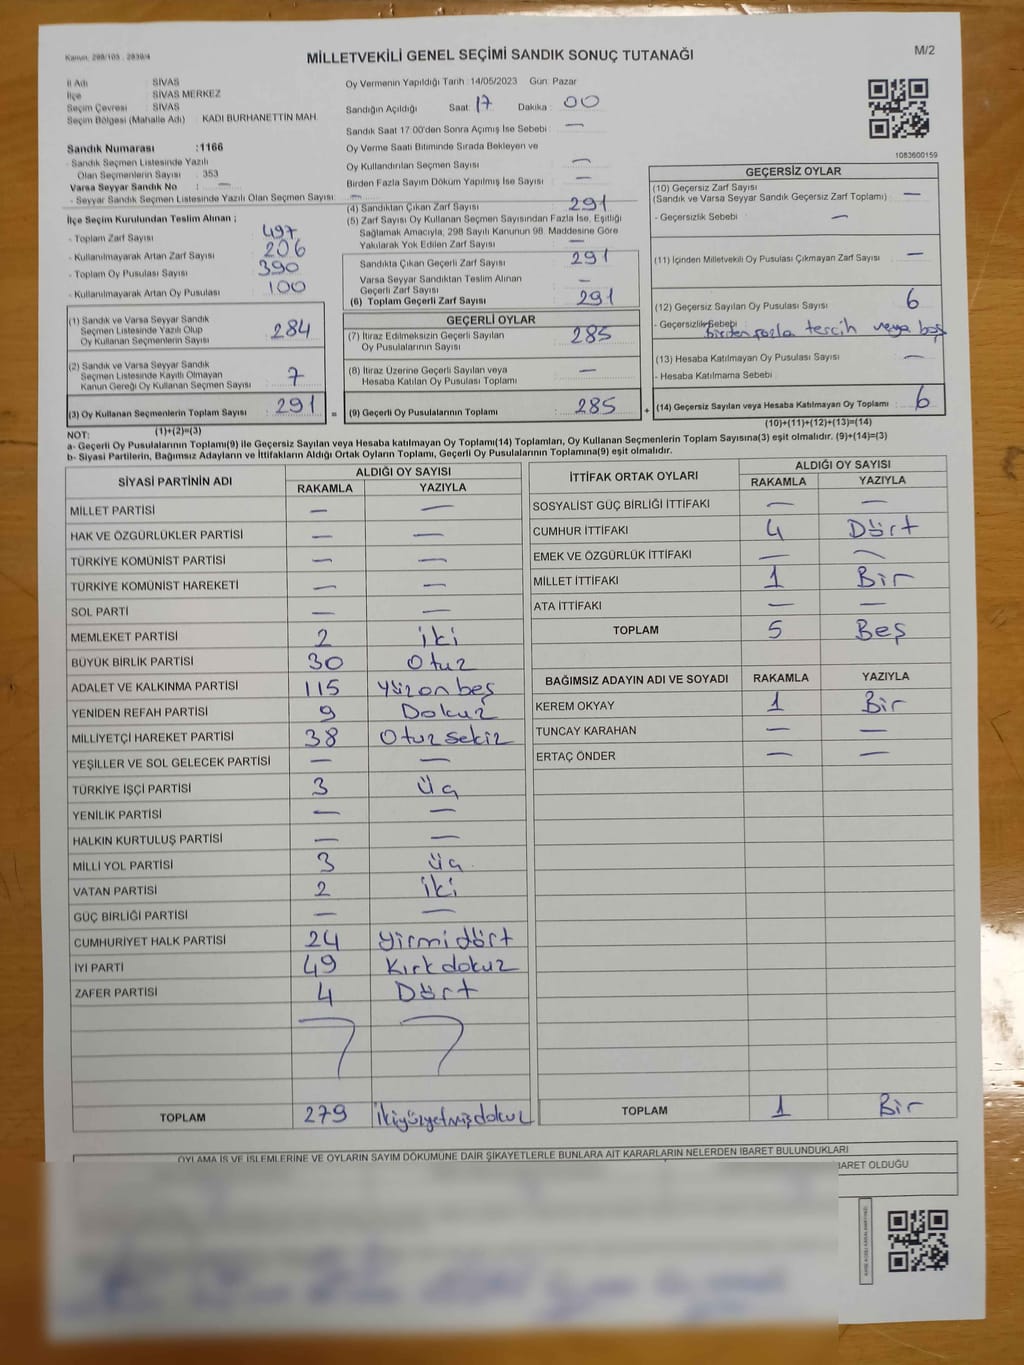 Kanun: 298/103 , 2839/4
MİLLETVEKİLİ GENEL SEÇİMİ SANDIK SONUÇ TUTANAĞI
M/2
İl Adı : SİVAS
İlçe : SİVAS MERKEZ
Seçim Çevresi : SİVAS
Seçim Bölgesi (Mahalle Adı) : KADI BURHANETTİN MAH.
Sandık Numarası :1166
- Sandık Seçmen Listesinde Yazılı
Olan Seçmenlerin Sayısı : 353
Varsa Seyyar Sandık No : —
- Seyyar Sandık Seçmen Listesinde Yazılı Olan Seçmen Sayısı : —
İlçe Seçim Kurulundan Teslim Alınan ;
- Toplam Zarf Sayısı : 497
- Kullanılmayarak Artan Zarf Sayısı : 206
- Toplam Oy Pusulası Sayısı : 390
- Kullanılmayarak Artan Oy Pusulası : 100
(1) Sandık ve Varsa Seyyar Sandık
Seçmen Listesinde Yazılı Olup
Oy Kullanan Seçmenlerin Sayısı : 284
(2) Sandık ve Varsa Seyyar Sandık
Seçmen Listesinde Kayıtlı Olmayan
Kanun Gereği Oy Kullanan Seçmen Sayısı : 7
(3) Oy Kullanan Seçmenlerin Toplam Sayısı : 291
(1)+(2)=(3)
Oy Vermenin Yapıldığı Tarih :14/05/2023 Gün: Pazar
Sandığın Açıldığı Saat: 17 Dakika : 00
Sandık Saat 17:00'den Sonra Açımış İse Sebebi : —
Oy Verme Saati Bitiminde Sırada Bekleyen ve
Oy Kullandırılan Seçmen Sayısı : —
Birden Fazla Sayım Döküm Yapılmış İse Sayısı : —
(4) Sandıktan Çıkan Zarf Sayısı : 291
(5) Zarf Sayısı Oy Kullanan Seçmen Sayısından Fazla İse, Eşitliği
Sağlamak Amacıyla, 298 Sayılı Kanunun 98. Maddesine Göre
Yakılarak Yok Edilen Zarf Sayısı : —
Sandıkta Çıkan Geçerli Zarf Sayısı : 291
Varsa Seyyar Sandıktan Teslim Alınan
Geçerli Zarf Sayısı : —
(6) Toplam Geçerli Zarf Sayısı : 291
GEÇERLİ OYLAR
(7) İtiraz Edilmeksizin Geçerli Sayılan
Oy Pusulalarının Sayısı : 285
(8) İtiraz Üzerine Geçerli Sayılan veya
Hesaba Katılan Oy Pusulası Toplamı : —
= (9) Geçerli Oy Pusulalarının Toplamı : 285
1083600159
GEÇERSİZ OYLAR
(10) Geçersiz Zarf Sayısı
(Sandık ve Varsa Seyyar Sandık Geçersiz Zarf Toplamı) : —
- Geçersizlik Sebebi : —
(11) İçinden Milletvekili Oy Pusulası Çıkmayan Zarf Sayısı : —
(12) Geçersiz Sayılan Oy Pusulası Sayısı : 6
- Geçersizlik Sebebi : birden fazla tercih veya boş
(13) Hesaba Katılmayan Oy Pusulası Sayısı : —
- Hesaba Katılmama Sebebi :
+ (14) Geçersiz Sayılan veya Hesaba Katılmayan Oy Toplamı : 6
(10)+(11)+(12)+(13)=(14)
NOT:
a- Geçerli Oy Pusulalarının Toplamı(9) ile Geçersiz Sayılan veya Hesaba katılmayan Oy Toplamı(14) Toplamları, Oy Kullanan Seçmenlerin Toplam Sayısına(3) eşit olmalıdır. (9)+(14)=(3)
b- Siyasi Partilerin, Bağımsız Adayların ve İttifakların Aldığı Ortak Oyların Toplamı, Geçerli Oy Pusulalarının Toplamına(9) eşit olmalıdır.
SİYASİ PARTİNİN ADI ALDIĞI OY SAYISI
RAKAMLA YAZIYLA
MİLLET PARTİSİ — —
HAK VE ÖZGÜRLÜKLER PARTİSİ — —
TÜRKİYE KOMÜNİST PARTİSİ — —
TÜRKİYE KOMÜNİST HAREKETİ — —
SOL PARTİ — —
MEMLEKET PARTİSİ 2 iki
BÜYÜK BİRLİK PARTİSİ 30 Otuz
ADALET VE KALKINMA PARTİSİ 115 yüzonbeş
YENİDEN REFAH PARTİSİ 9 Dokuz
MİLLİYETÇİ HAREKET PARTİSİ 38 Otuzsekiz
YEŞİLLER VE SOL GELECEK PARTİSİ — —
TÜRKİYE İŞÇİ PARTİSİ 3 Üç
YENİLİK PARTİSİ — —
HALKIN KURTULUŞ PARTİSİ — —
MİLLİ YOL PARTİSİ 3 üç
VATAN PARTİSİ 2 iki
GÜÇ BİRLİĞİ PARTİSİ — —
CUMHURİYET HALK PARTİSİ 24 yirmidört
İYİ PARTİ 49 Kırkdokuz
ZAFER PARTİSİ 4 Dört
TOPLAM 279 ikiyüzyetmişdokuz
İTTİFAK ORTAK OYLARI ALDIĞI OY SAYISI
RAKAMLA YAZIYLA
SOSYALİST GÜÇ BİRLİĞİ İTTİFAKI — —
CUMHUR İTTİFAKI 4 Dört
EMEK VE ÖZGÜRLÜK İTTİFAKI — —
MİLLET İTTİFAKI 1 Bir
ATA İTTİFAKI — —
TOPLAM 5 Beş
BAĞIMSIZ ADAYIN ADI VE SOYADI RAKAMLA YAZIYLA
KEREM OKYAY 1 Bir
TUNCAY KARAHAN — —
ERTAÇ ÖNDER — —
TOPLAM 1 Bir
OYLAMA İŞ VE İŞLEMLERİNE VE OYLARIN SAYIM DÖKÜMÜNE DAİR ŞİKAYETLERLE BUNLARA AİT KARARLARIN NELERDEN İBARET BULUNDUKLARI
İBARET OLDUĞU